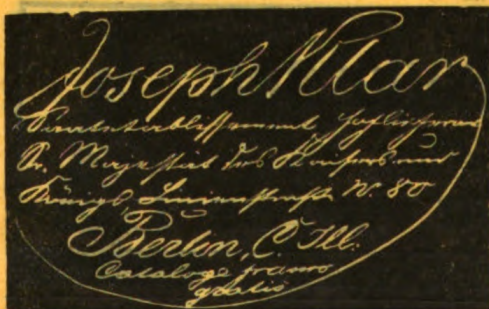 Joseph Klar
Saatetablissement Hoflieferant
Sr. Majestät des Kaisers und
Königs, Linienstraße N. 80
Berlin, C.
Cataloge franco
gratis